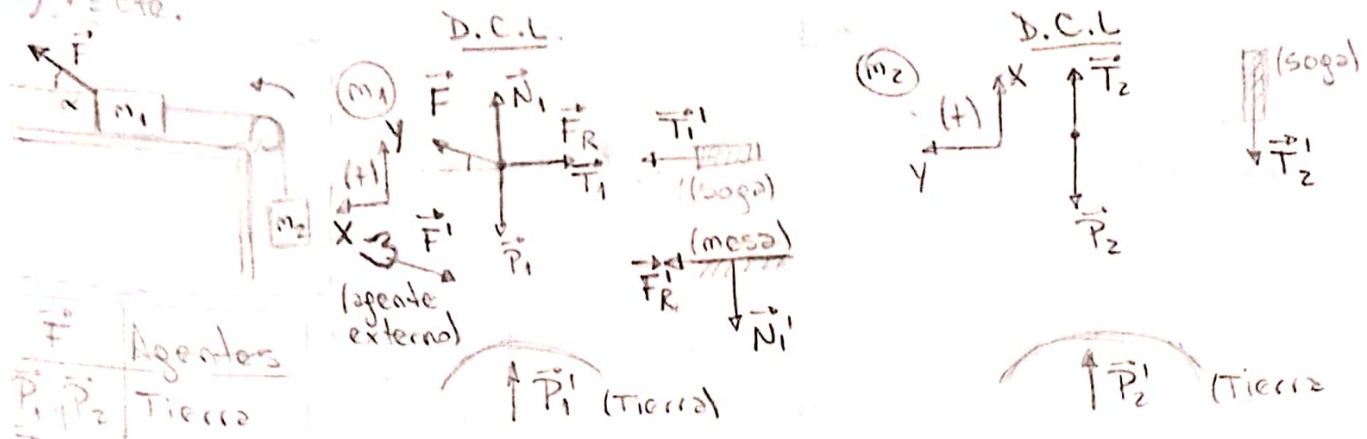 F⃗
α
m1
m2
F⃗ | Agentes
P⃗1, P⃗2 | Tierra
D.C.L.
m1
F⃗
N⃗1
F⃗R
T⃗1
P⃗1
Y
(+)
X
F⃗'
(agente
externo)
T⃗1'
(soga)
(mesa)
F⃗R'
N⃗1'
P⃗1' (Tierra)
D.C.L
m2
X
(+)
Y
T⃗2
P⃗2
(soga)
T⃗2'
P⃗2' (Tierra